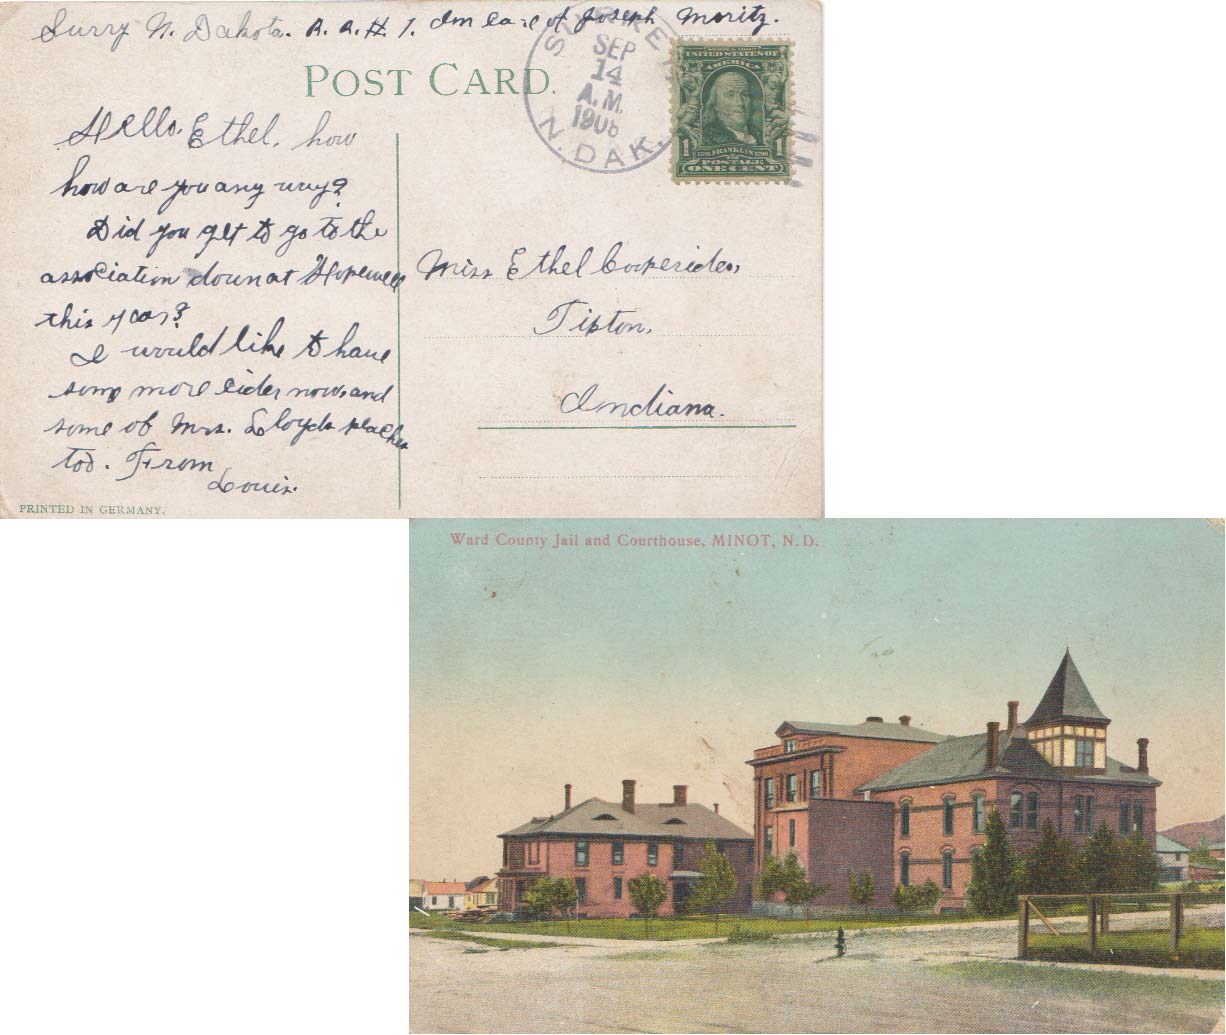 Surry N. Dakota. R. R. # 1. Im care of Joseph Moritz.
POST CARD.
SEP
14
A.M.
1908
N. DAK.
UNITED STATES OF
AMERICA
1 FRANKLIN 1
POSTAGE
ONE CENT
Hello. Ethel, how
how are you any way?
Did you get to go to the
association down at Hopewell
this year?
I would like to have
some more cider now, and
some of Mrs. Lloyds peaches
too. From
Louis.
Miss Ethel Cooperider,
Tipton,
Indiana.
PRINTED IN GERMANY.
Ward County Jail and Courthouse, MINOT, N. D.